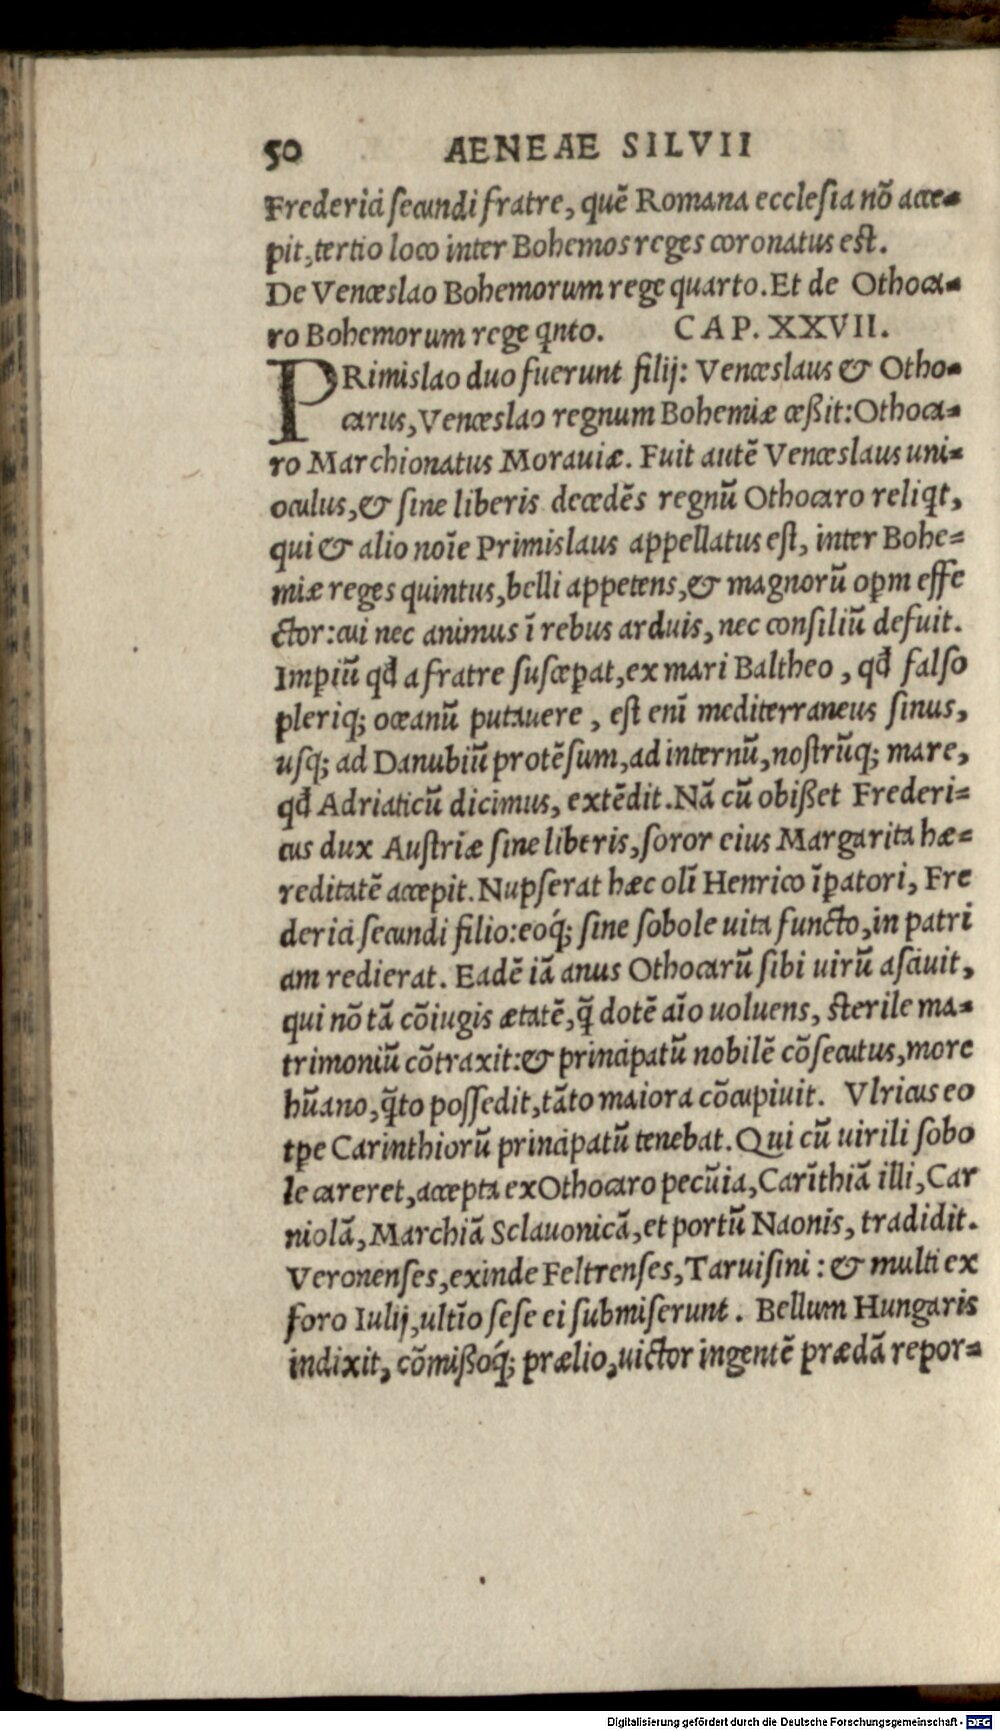 50 AENEAE SILVII
Frederici secundi fratre, quẽ Romana ecclesia nõ acce-
pit, tertio loco inter Bohemos reges coronatus est.
De Venceslao Bohemorum rege quarto. Et de Othoca-
ro Bohemorum rege qͥnto. CAP. XXVII.
PRimislao duo fuerunt filij: Venceslaus & Otho-
carus, Venceslao regnum Bohemiæ ceßit: Othoca-
ro Marchionatus Morauiæ. Fuit autẽ Venceslaus uni-
oculus, & sine liberis decedẽs regnũ Othocaro reliqͥt,
qui & alio noĩe Primislaus appellatus est, inter Bohe-
miæ reges quintus, belli appetens, & magnorũ oꝑm effe
ctor: cui nec animus ĩ rebus arduis, nec consiliũ defuit.
Imꝑiũ qđ a fratre susceꝑat, ex mari Baltheo, qđ falso
pleriq; oceanũ putauere, est enĩ mediterraneus sinus,
usq; ad Danubiũ protẽsum, ad internũ, nostrũq; mare,
qđ Adriaticũ dicimus, extẽdit. Nã cũ obißet Frederi-
cus dux Austriæ sine liberis, soror eius Margarita hæ-
reditatẽ accepit. Nupserat hæc olĩ Henrico ĩꝑatori, Fre
derici secundi filio: eoq́; sine sobole uita functo, in patri
am redierat. Eadẽ iã anus Othocarũ sibi uirũ asciuit,
qui nõ tã cõiugis ætatẽ, q̃ dotẽ aĩo uoluens, sterile ma-
trimoniũ cõtraxit: & principatũ nobilẽ cõsecutus, more
hũano, q̃to possedit, tãto maiora cõcupiuit. Vlricus eo
tꝑe Carinthiorũ principatũ tenebat. Qui cũ uirili sobo
le careret, accepta ex Othocaro pecũia, Carĩthiã illi, Car
niolã, Marchiã Sclauonicã, et portũ Naonis, tradidit.
Veronenses, exinde Feltrenses, Taruisini: & multi ex
foro Iulij, ultĩo sese ei submiserunt. Bellum Hungaris
indixit, cõmißoq́; prælio, uictor ingentẽ prædã repor-
Digitalisierung gefördert durch die Deutsche Forschungsgemeinschaft - DFG